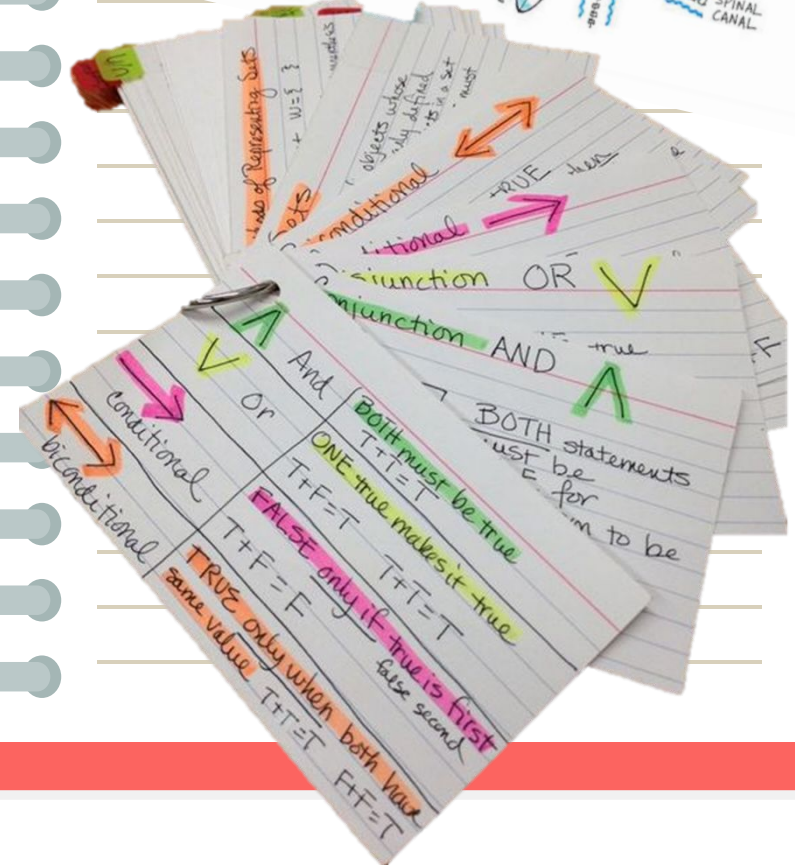 SPINAL
CANAL
Kinds of Representing Sets
+ W={ }
Sets
objects whose
defined
in a set
must
biconditional
conditional
TRUE then
disjunction OR V
conjunction AND Λ
true
BOTH statements
must be
for
to be
Λ And
BOTH must be true
T+T=T
V Or
ONE true makes it true
T+F=T T+T=T
conditional
FALSE only if true is first
false second
T+F=F
biconditional
TRUE only when both have
same value
T+T=T F+F=T